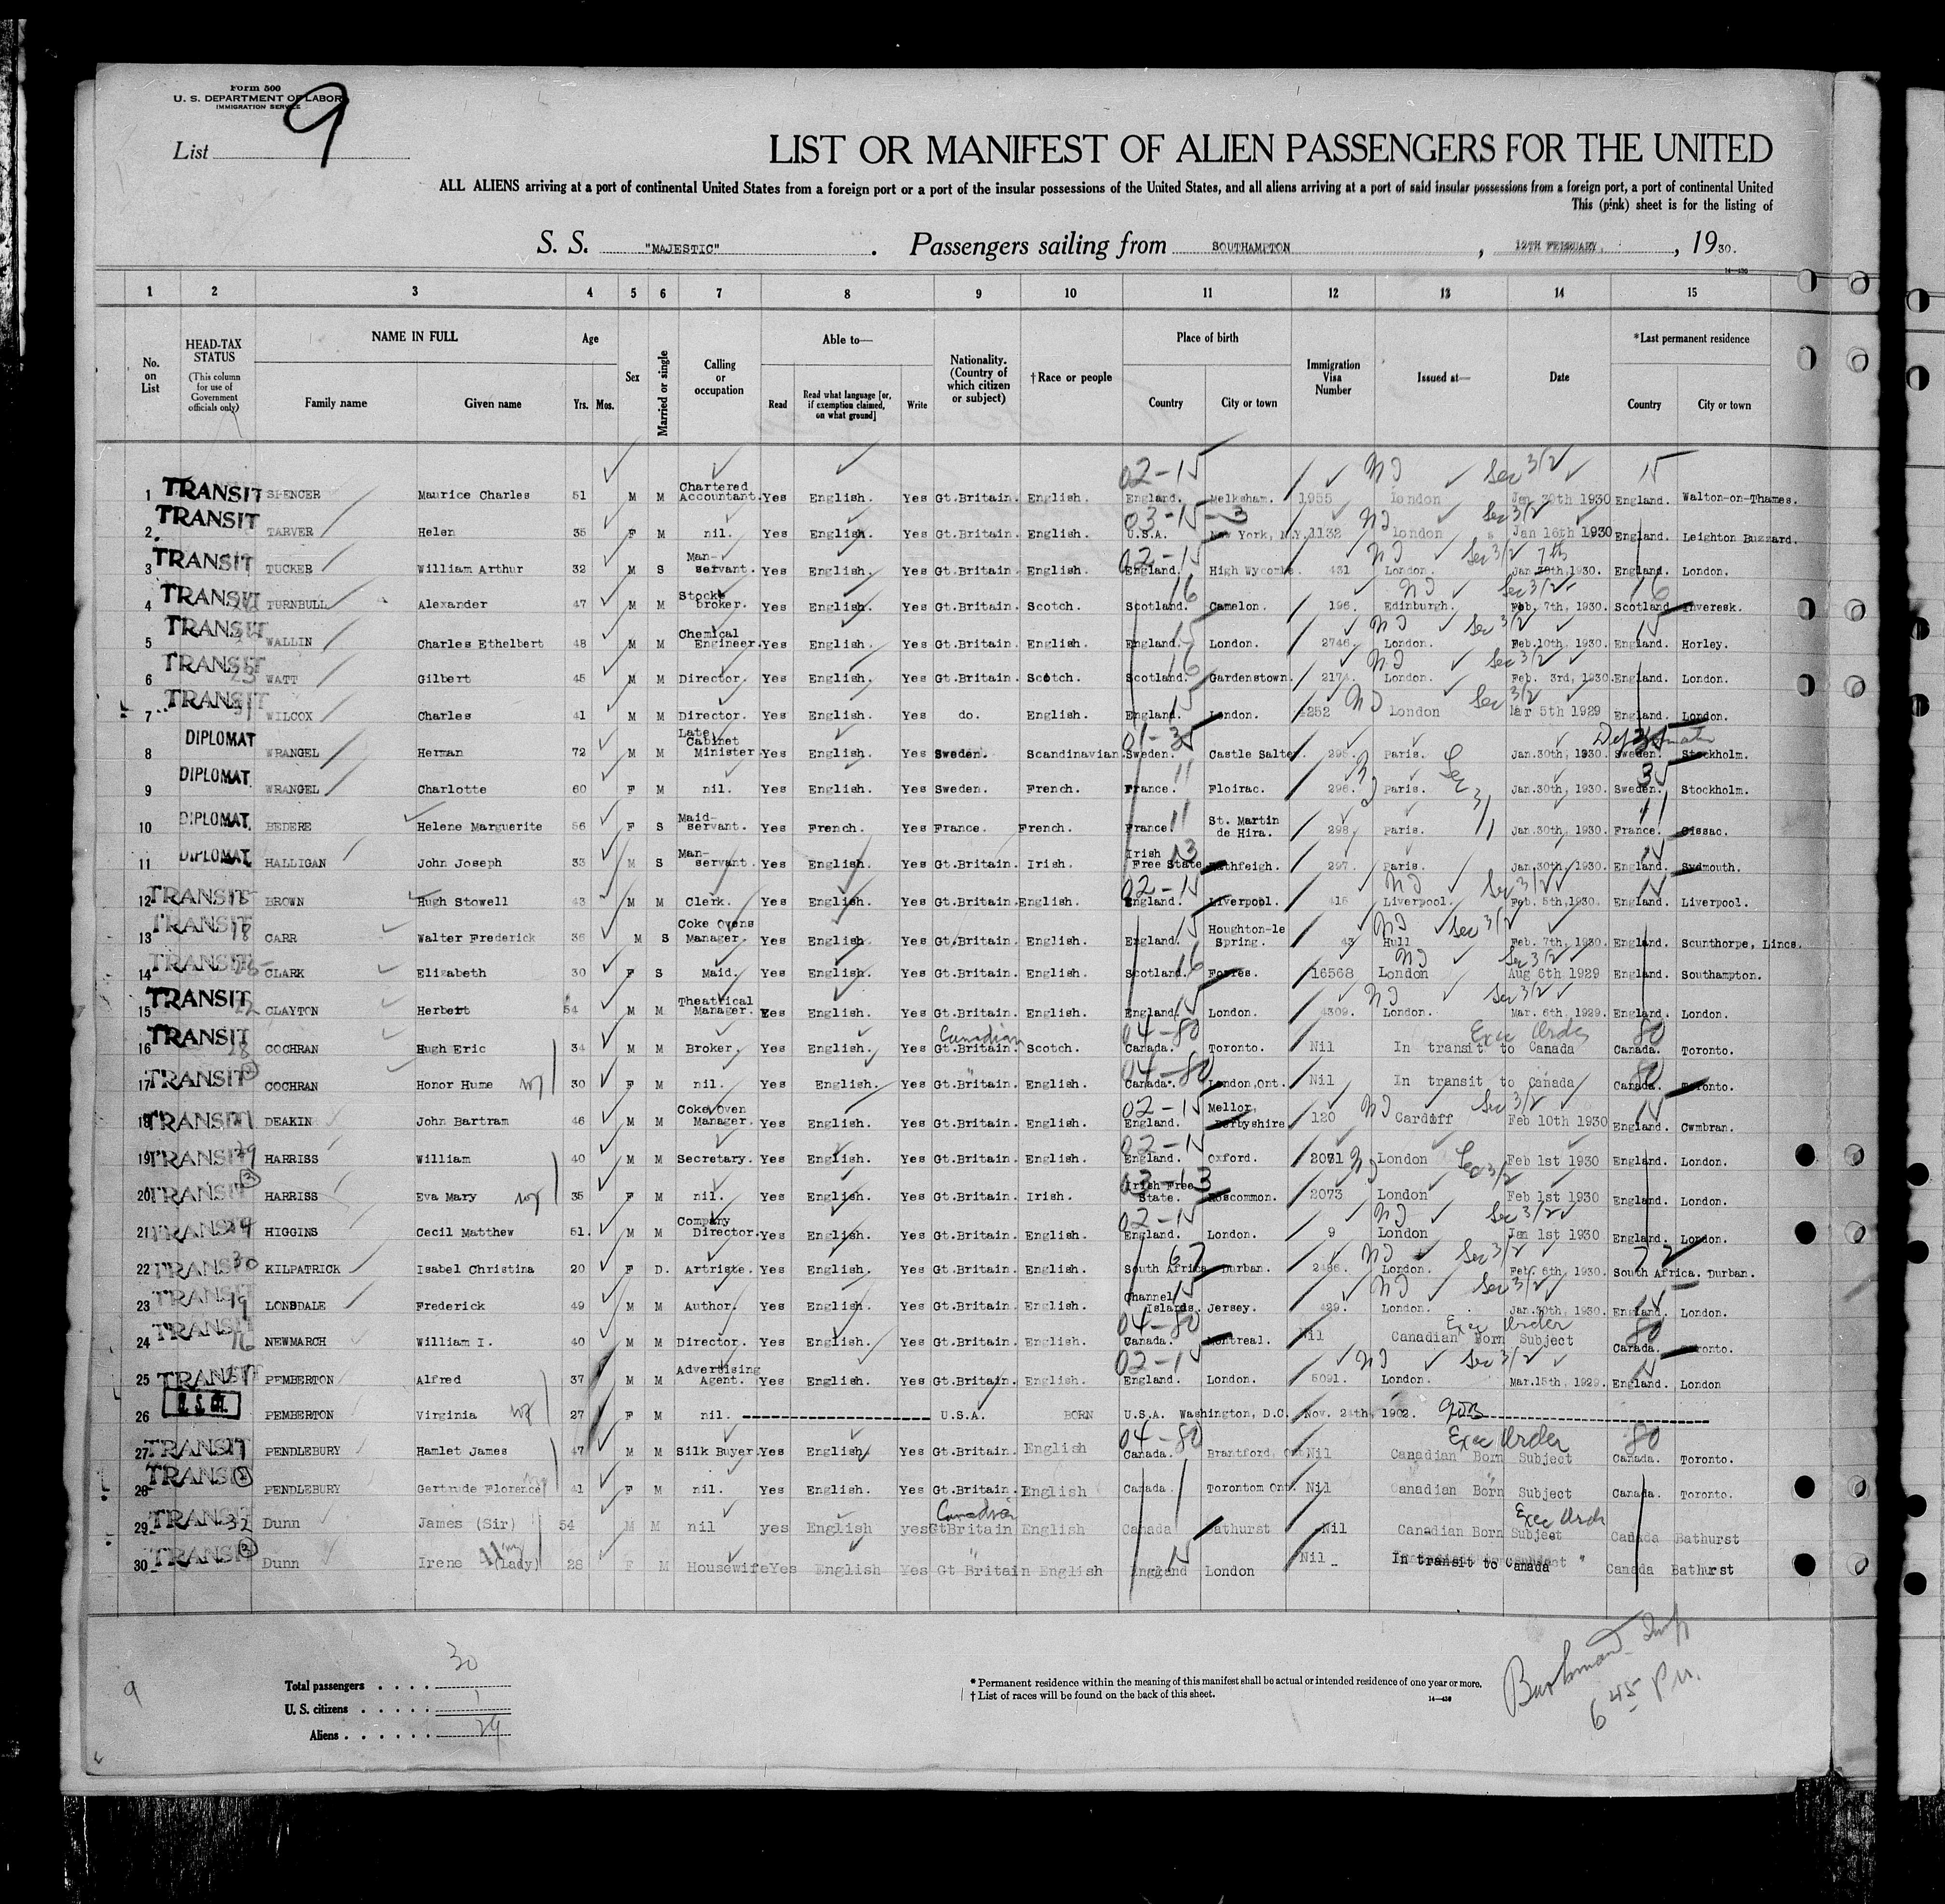 Form 500
U. S. DEPARTMENT OF LABOR
IMMIGRATION SERVICE
List 9
LIST OR MANIFEST OF ALIEN PASSENGERS FOR THE UNITED
ALL ALIENS arriving at a port of continental United States from a foreign port or a port of the insular possessions of the United States, and all aliens arriving at a port of said insular possessions from a foreign port, a port of continental United
This (pink) sheet is for the listing of
S. S. "MAJESTIC". Passengers sailing from SOUTHAMPTON, 12TH FEBRUARY, 1930.
14—430
1 2 3 4 5 6 7 8 9 10 11 12 13 14 15
No. on List
HEAD-TAX STATUS (This column for use of Government officials only)
NAME IN FULL Family name Given name
Age Yrs. Mos.
Sex
Married or single
Calling or occupation
Able to— Read Read what language [or, if exemption claimed, on what ground] Write
Nationality. (Country of which citizen or subject)
†Race or people
Place of birth Country City or town
Immigration Visa Number
Issued at—
Date
*Last permanent residence Country City or town
1 TRANSIT SPENCER Maurice Charles 51 M M Chartered Accountant. Yes English. Yes Gt.Britain. English. 02-15 England. Melksham. 1955 London Sec 3/2 Jan 30th 1930 15 England. Walton-on-Thames.
2 TRANSIT TARVER Helen 35 F M nil. Yes English. Yes Gt.Britain. English. 03-15-3 U.S.A. New York, N.Y. 1132 London Sec 3/2 Jan 16th 1930 England. Leighton Buzzard.
3 TRANSIT TUCKER William Arthur 32 M S Man-servant. Yes English. Yes Gt.Britain. English. 02-15 England. High Wycombe. 431 London. Sec 3/2 7th Jan 1930. England. London.
4 TRANSIT TURNBULL Alexander 47 M M Stock broker. Yes English. Yes Gt.Britain. Scotch. 16 Scotland. Camelon. 196. Edinburgh. Sec 3/2 Feb. 7th, 1930. 16 Scotland. Inveresk.
5 TRANSIT WALLIN Charles Ethelbert 48 M M Chemical Engineer. Yes English. Yes Gt.Britain. English. 15 England. London. 2746. London. Sec 3/2 Feb.10th, 1930. 15 England. Horley.
6 TRANSIT 23 WATT Gilbert 45 M M Director. Yes English. Yes Gt.Britain. Scotch. 16 Scotland. Gardenstown. 2174. London. Sec 3/2 Feb. 3rd, 1930. England. London.
7 TRANSIT WILCOX Charles 41 M M Director. Yes English. Yes do. English. 15 England. London. 4252 London Sec 3/2 Mar 5th 1929 England. London.
8 DIPLOMAT WRANGEL Herman 72 M M Late Cabinet Minister Yes English. Yes Sweden. Scandinavian 01-35 Sweden. Castle Salter. 295. Paris. Jan.30th, 1930. Sweden. Stockholm.
9 DIPLOMAT WRANGEL Charlotte 60 F M nil. Yes English. Yes Sweden. French. 11 France. Floirac. 296. Paris. Sec 3/1 Jan.30th, 1930. 35 Sweden. Stockholm.
10 DIPLOMAT BEDERE Helene Marguerite 56 F S Maid-servant. Yes French. Yes France. French. 11 France. St. Martin de Hira. 298. Paris. Jan.30th, 1930. 11 France. Cissac.
11 DIPLOMAT HALLIGAN John Joseph 33 M S Man-servant. Yes English. Yes Gt.Britain. Irish. 13 Irish Free State. Rathfeigh. 297. Paris. Jan.30th, 1930. England. Sydmouth.
12 TRANSIT BROWN Hugh Stowell 43 M M Clerk. Yes English. Yes Gt.Britain. English. 02-15 England. Liverpool. 415 Liverpool. Sec 3/2 Feb. 5th, 1930. 15 England. Liverpool.
13 TRANSIT 18 CARR Walter Frederick 36 M S Coke Ovens Manager. Yes English. Yes Gt.Britain. English. 15 England. Houghton-le Spring. 43 Hull Sec 3/2 Feb. 7th, 1930. England. Scunthorpe, Lincs.
14 TRANSIT 25 CLARK Elizabeth 30 F S Maid. Yes English. Yes Gt.Britain. English. 16 Scotland. Forres. 16568 London Sec 3/2 Aug 6th 1929 England. Southampton.
15 TRANSIT 22 CLAYTON Herbert 54 M M Theatrical Manager. Yes English. Yes Gt.Britain. English. 15 England. London. 4309. London. Sec 3/2 Mar. 6th, 1929. England. London.
16 TRANSIT 28 COCHRAN Hugh Eric 34 M M Broker. Yes English. Yes Canadian Gt.Britain. Scotch. 04-80 Canada. Toronto. Nil Exec Order In transit to Canada 80 Canada. Toronto.
17 TRANSIT COCHRAN Honor Hume wf 30 F M nil. Yes English. Yes Gt.Britain. English. 04-80 Canada. London,Ont. Nil In transit to Canada 80 Canada. Toronto.
18 TRANSIT DEAKIN John Bartram 46 M M Coke Oven Manager. Yes English. Yes Gt.Britain. English. 02-15 England. Mellor, Derbyshire. 120 Cardiff Sec 3/2 Feb 10th 1930 15 England. Cwmbran.
19 TRANSIT 29 HARRISS William 40 M M Secretary. Yes English. Yes Gt.Britain. English. 02-15 England. Oxford. 2071 London Sec 3/2 Feb 1st 1930 England. London.
20 TRANSIT HARRISS Eva Mary wf 35 F M nil. Yes English. Yes Gt.Britain. Irish. 03-13 Irish Free State. Roscommon. 2073 London Feb 1st 1930 England. London.
21 TRANSIT HIGGINS Cecil Matthew 51. M M Company Director. Yes English. Yes Gt.Britain. English. 02-15 England. London. 9 London Sec 3/2 Jan 1st 1930 England. London.
22 TRANSIT 30 KILPATRICK Isabel Christina 20 F D. Artriste. Yes English. Yes Gt.Britain. English. 67 South Africa. Durban. 2486. London. Sec 3/2 Feb. 6th, 1930. South Africa. Durban.
23 TRANSIT 19 LONSDALE Frederick 49 M M Author. Yes English. Yes Gt.Britain. English. 15 Channel Islands. Jersey. 429. London. Sec 3/2 Jan.30th, 1930. England. London.
24 TRANSIT 16 NEWMARCH William I. 40 M M Director. Yes English. Yes Gt.Britain. English. 04-80 Canada. Montreal. Nil Exec Order Canadian Born Subject 80 Canada. Toronto.
25 TRANSIT PEMBERTON Alfred 37 M M Advertising Agent. Yes English. Yes Gt.Britain. English. 02-15 England. London. 5091. London. Sec 3/2 Mar.15th, 1929. England. London
26 PEMBERTON Virginia wf 27 F M nil. U.S.A. BORN U.S.A. Washington, D.C. Nov. 24th, 1902.
27 TRANSIT PENDLEBURY Hamlet James 47 M M Silk Buyer. Yes English Yes Gt.Britain. English 04-80 Canada. Brantford, Ont Nil Exec Order Canadian Born Subject 80 Canada. Toronto.
28 TRANSIT PENDLEBURY Gertrude Florence 41 F M nil. Yes English. Yes Gt.Britain. English Canada. Torontom Ont. Nil Canadian Born Subject Canada. Toronto.
29 TRANSIT 32 Dunn James (Sir) 54 M M nil yes English yes Canadian GtBritain English Canada Bathurst Nil Exec Order Canadian Born Subject Canada Bathurst
30 TRANSIT Dunn Irene (Lady) 28 F M Housewife Yes English Yes Gt Britain English 15 England London Nil In transit to Canada Canada Bathurst
Total passengers . . . . 30
U. S. citizens . . . . . 1
Aliens . . . . . . 29
* Permanent residence within the meaning of this manifest shall be actual or intended residence of one year or more.
† List of races will be found on the back of this sheet.
14—430
6 45 P.M.
9